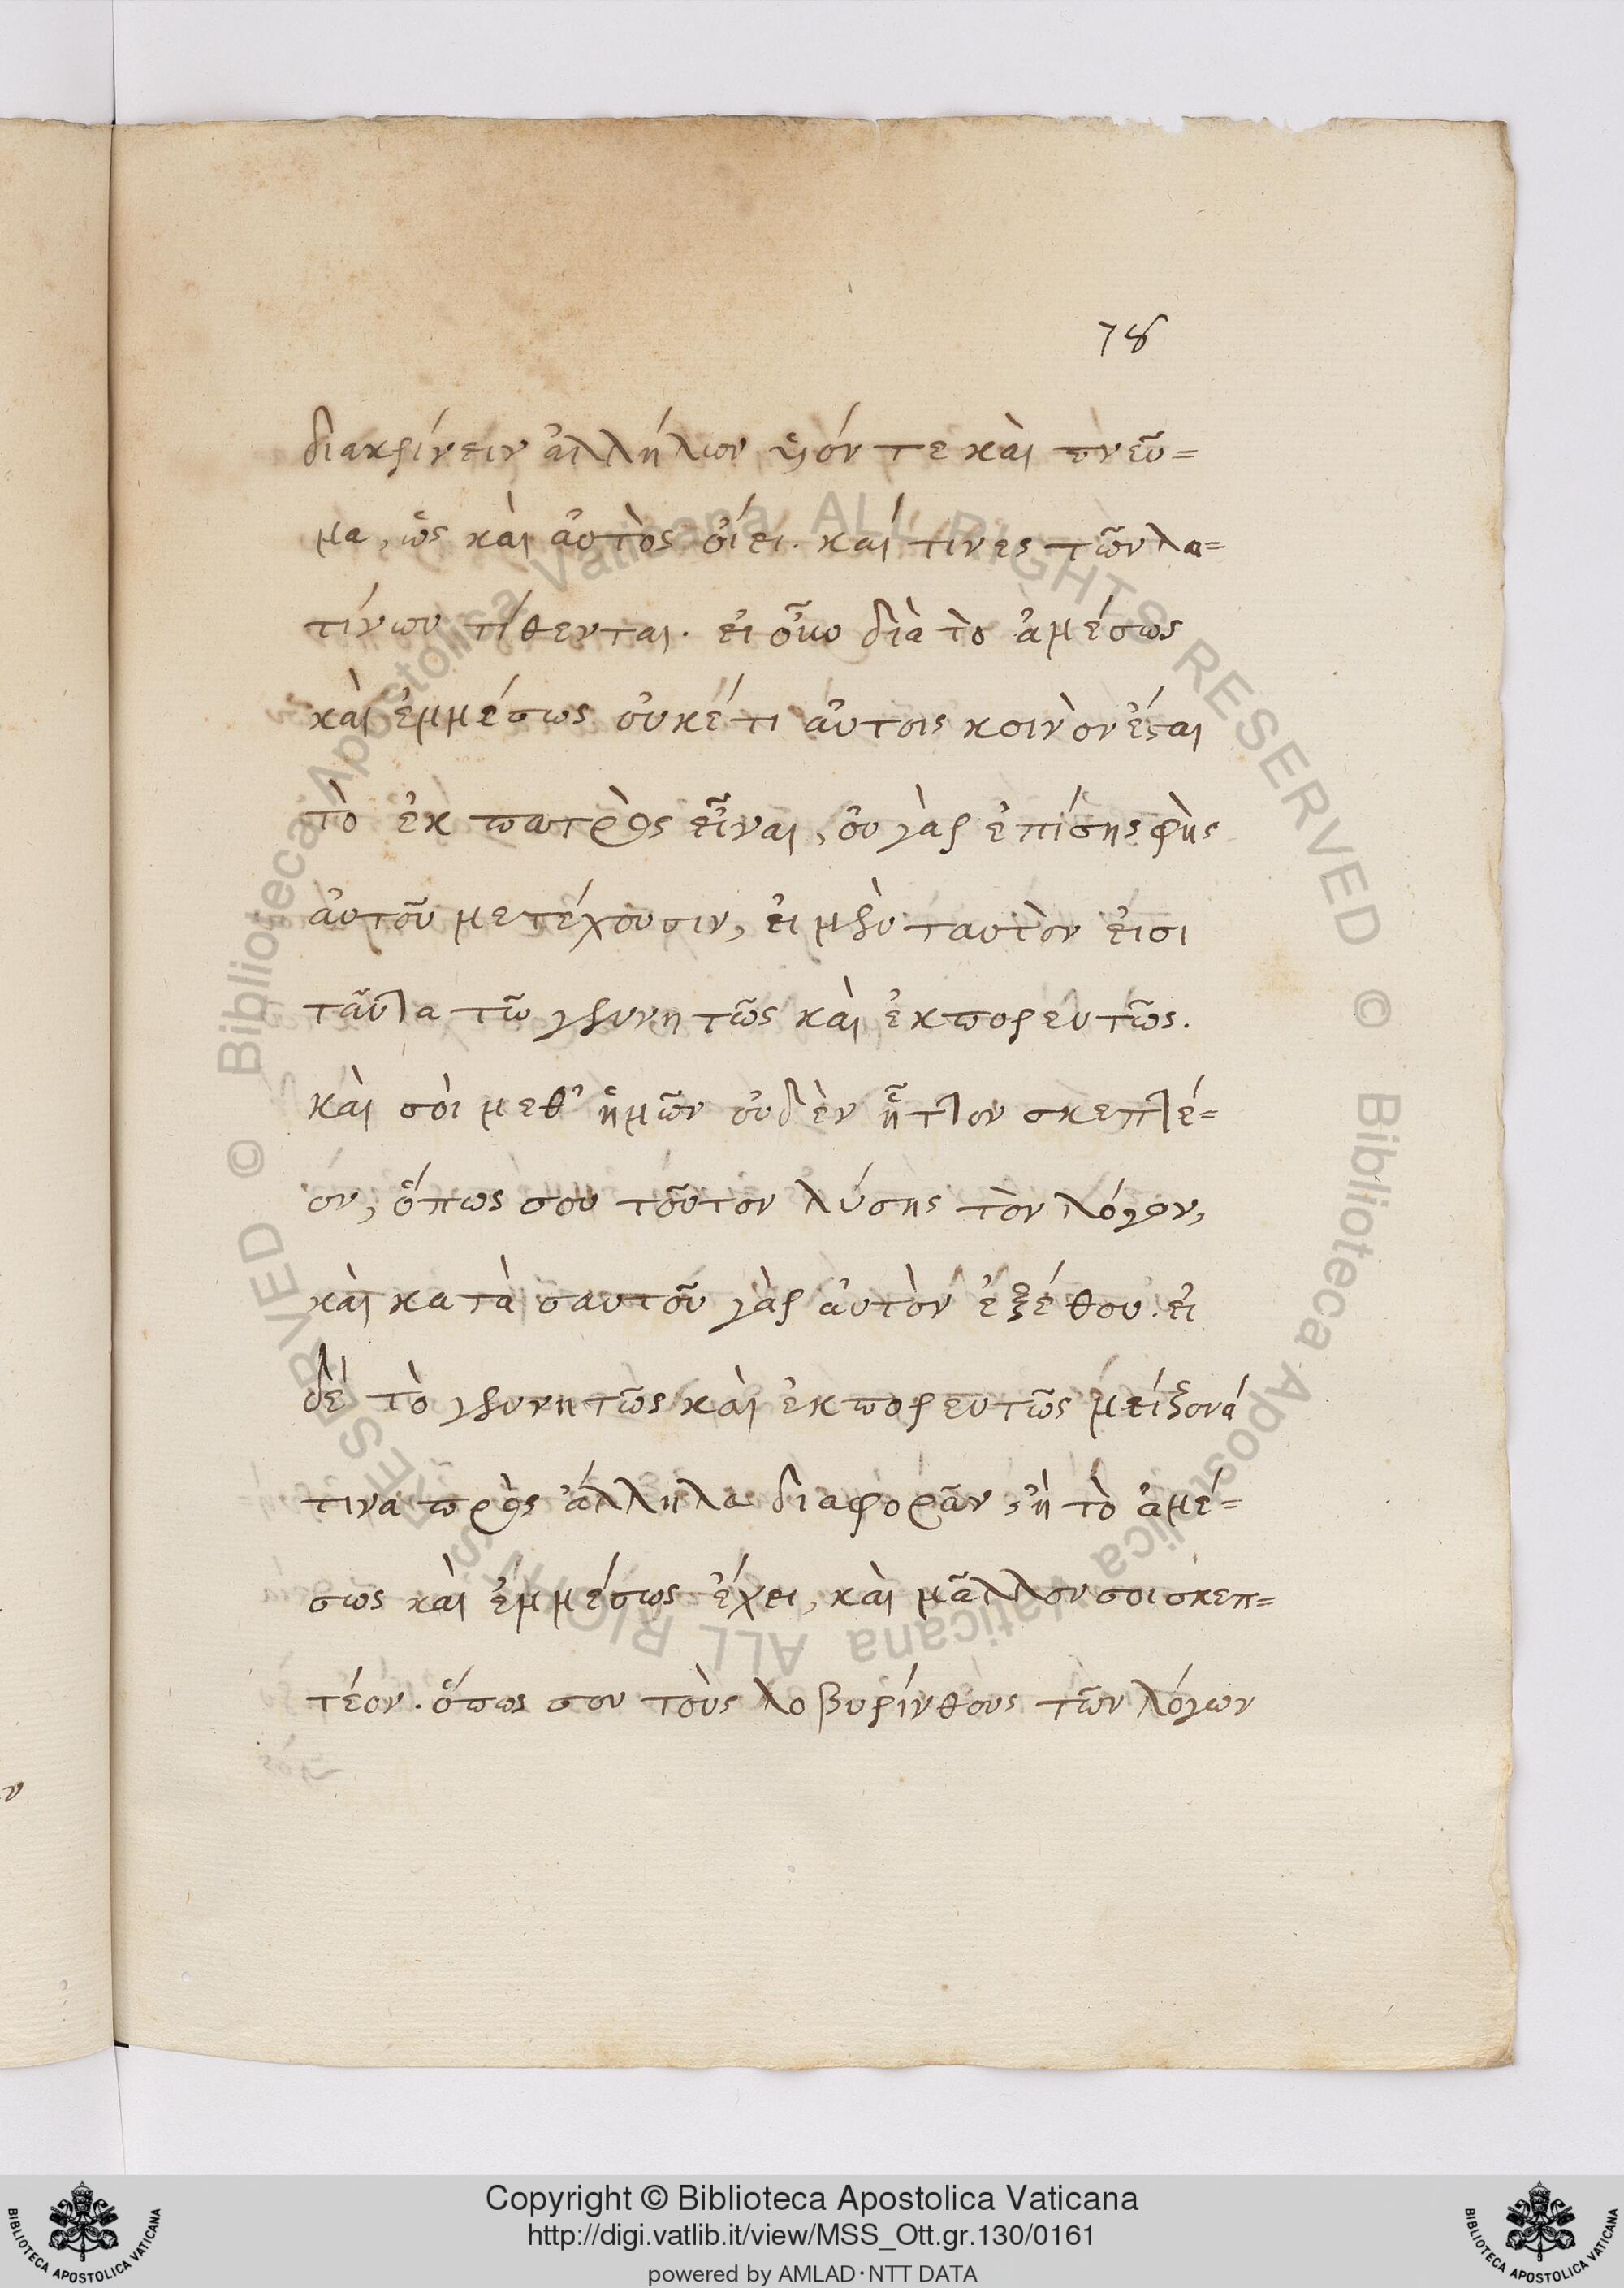 78
διακρίνειν ἀλλήλων υἱόν τε καὶ πνεῦ=
μα, ὡς καὶ αὐτὸς οἴει. καί τινες τῶν λα=
τίνων τίθενται. εἰ οὖν διὰ τὸ ἀμέσως
καὶ ἐμμέσως οὐκέτι αὐτοις κοινὸν ἔσται
τὸ ἐκ πατρὸς εἶναι, οὐ γὰρ ἐπίσης φῂς
αὐτοῦ μετέχουσιν, εἰ μὲν ταυτὸν εἰσι
ταῦτα τῶ γεννητῶς καὶ ἐκπορευτῶς.
καὶ σοὶ μεθ' ἡμῶν οὐδὲν ἧττον σκεπτέ=
ον, ὅπως σου τοῦτον λύσης τὸν λόγον,
καὶ κατὰ σαυτοῦ γὰρ αὐτὸν ἐξέθου. εἰ
δέ τὸ γεννητῶς καὶ ἐκπορευτῶς μείζονά
τινα πρὸς ἄλληλα διαφορᾶν, ἢ τὸ ἀμέ=
σως καὶ ἐμμέσως ἔχει, καὶ μᾶλλον σοι σκεπ=
τέον. ὅπως σου τοὺς λοβυρίνθους τῶν λόγων
Copyright © Biblioteca Apostolica Vaticana
http://digi.vatlib.it/view/MSS_Ott.gr.130/0161
powered by AMLAD·NTT DATA
BIBLIOTECA APOSTOLICA VATICANA
BIBLIOTECA APOSTOLICA VATICANA
© Biblioteca Apostolica Vaticana ALL RIGHTS RESERVED © Biblioteca Apostolica Vaticana ALL RIGHTS RESERVED